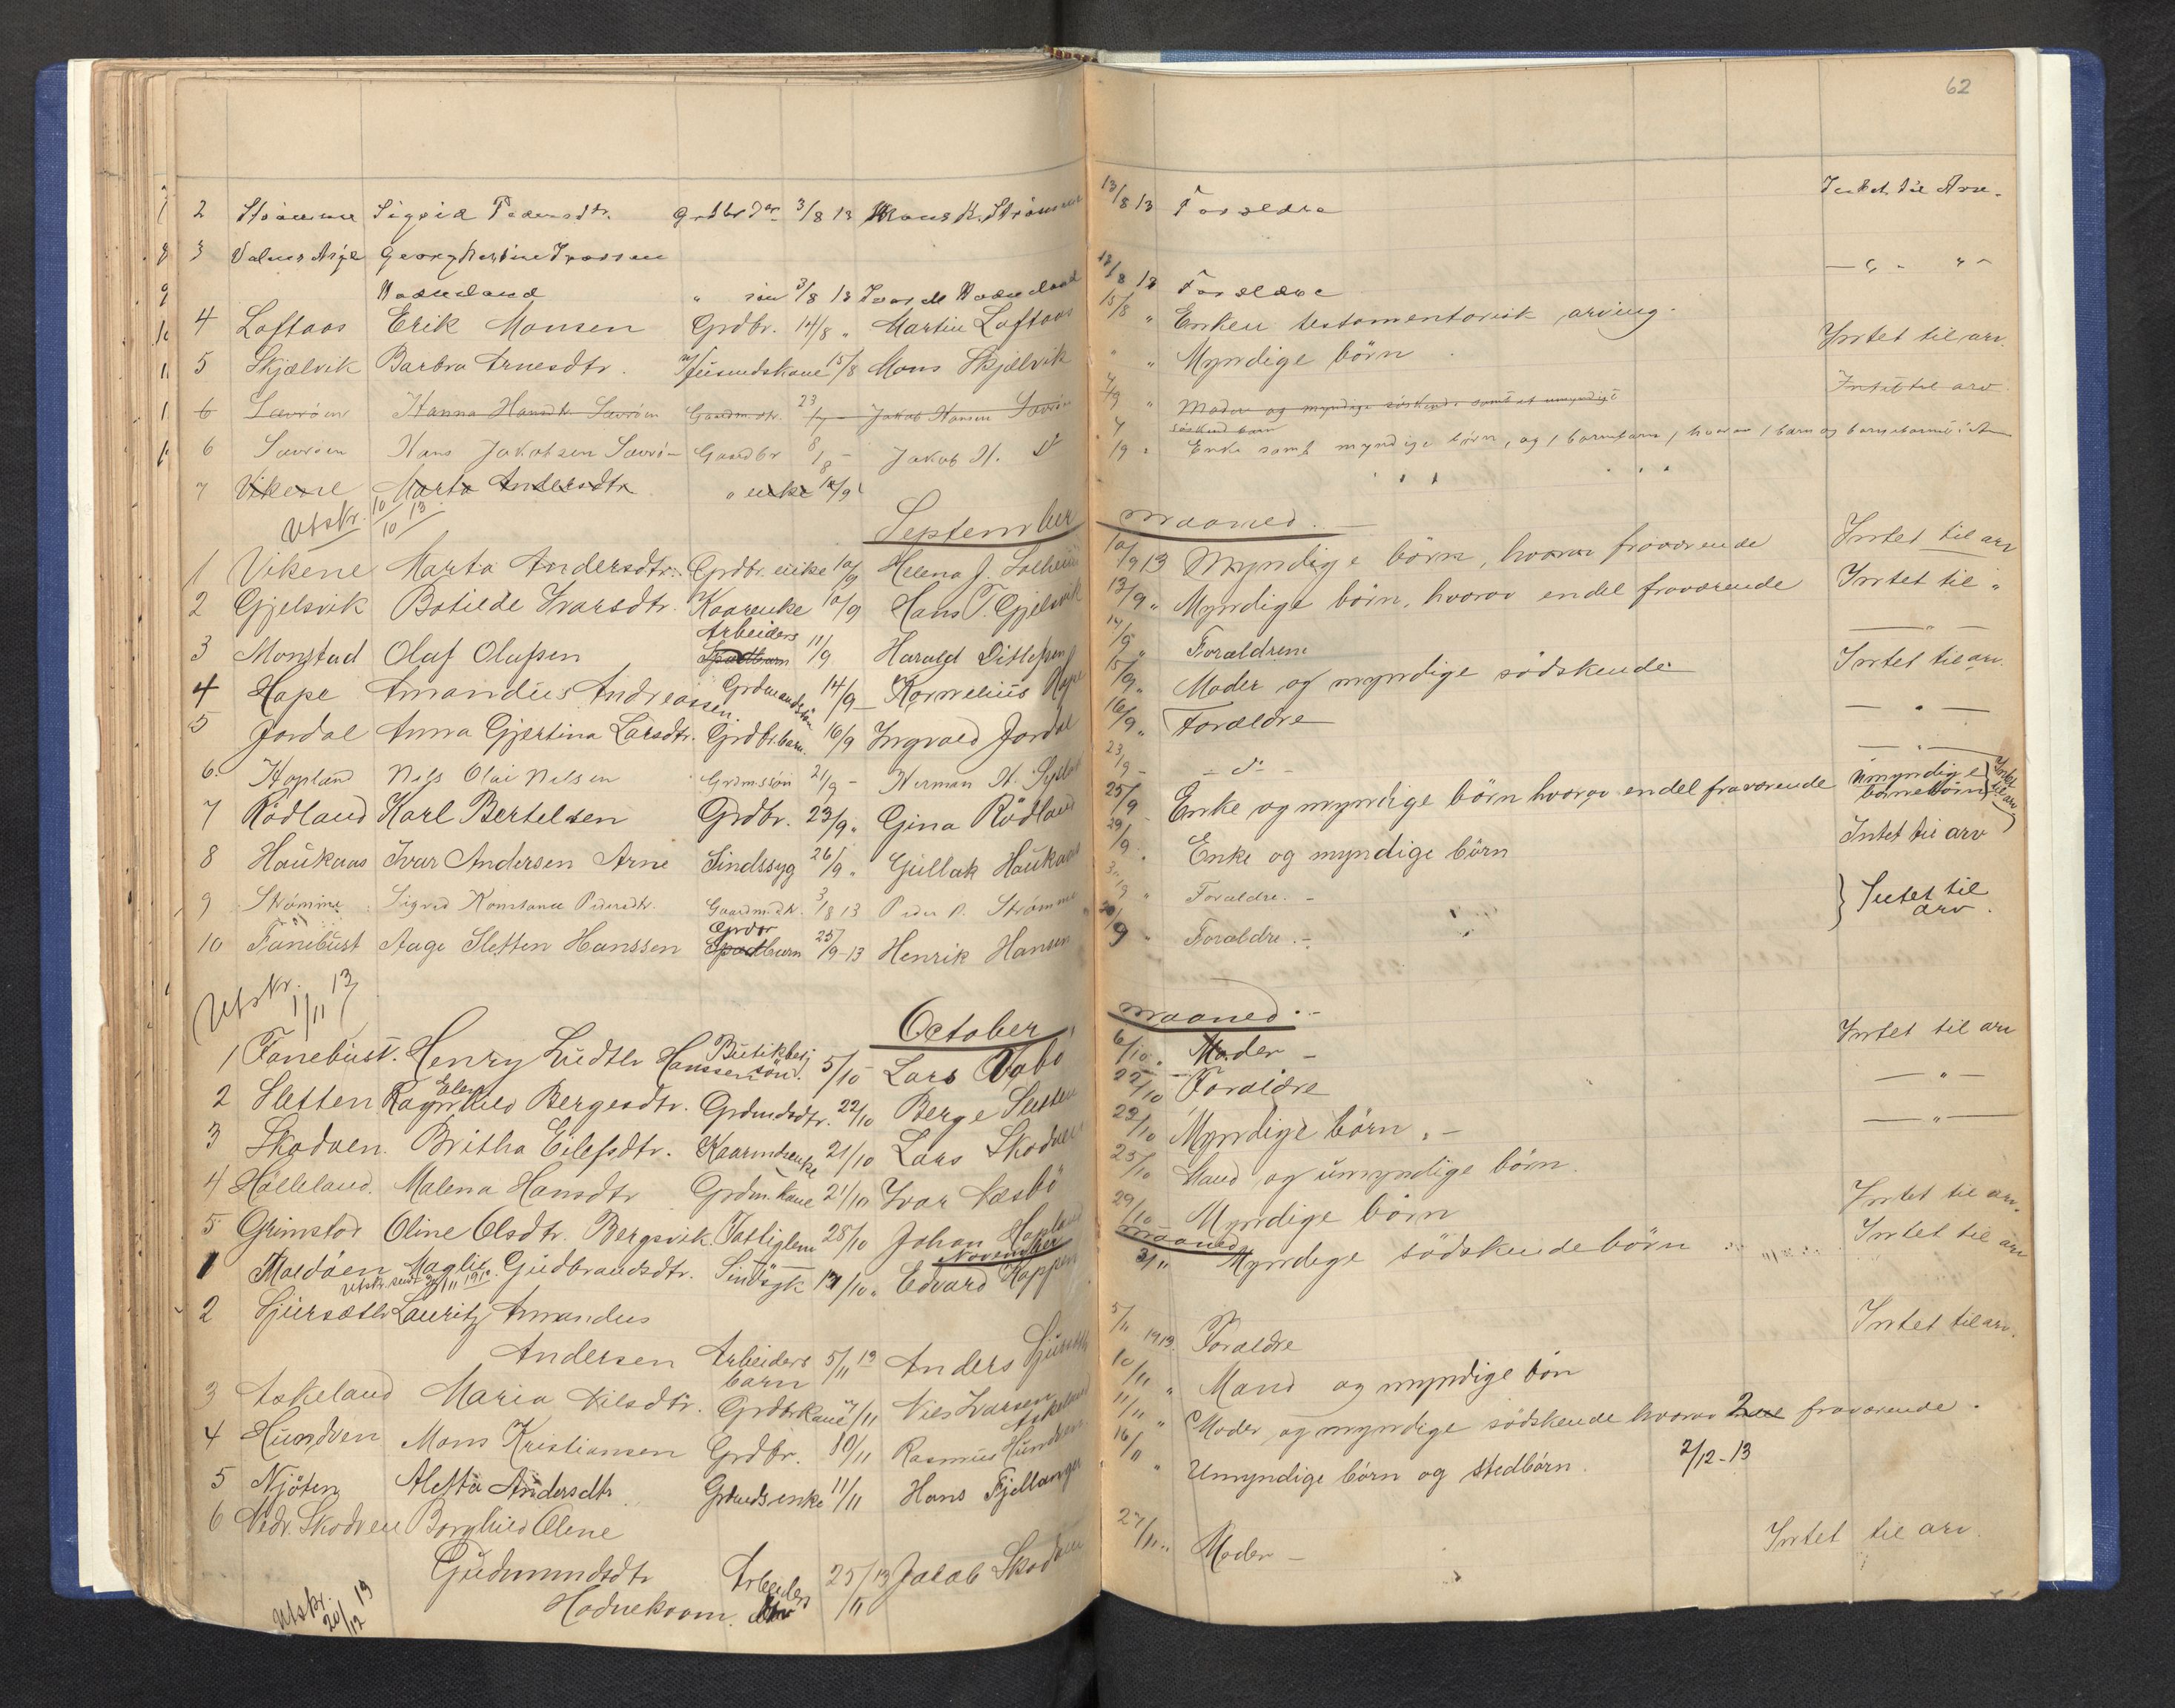 62
2 Strömme Sigrid Pedersdtr. grdbr dtr 3/8 13 Mons R. Strömme 13/8 13 Forældre Intet til Arv.
3 Georg Martin Ivarsen
sön 3/8 13 Ivar M 18/8 13 Forældre — " - " -
4 Loftaas Erik Monsen Grdbr. 14/8 " Martin Loftaas 15/8 " Enken testamentarisk arving.
5 Skjælvik Barbra Arnesdtr. Huusmdskone 15/8 Mons Skjælvik " " Myndige börn. Intet til arv.
6 Sævröen Hanna Hansdtr. Sævröen Gaardm.dtr. 23/7 — Jakob Hansen Sævröen 4/9 " Moder og myndige söskende samt et umyndigt Intet til arv
söskend barn
6 Sævröen Hans Jakobsen Sævrö- Gaardbr 8/8 - Jakob H. Do 4/9 " Enke samt myndige börn, og 1 barnebarn,
7 Vikene Marta Andersdtr. " enke 10/9
Utskr. 10/10 13
September maaned.
1 Vikene Marta Andersdtr. Grdbr. enke 10/9 Helena J. Solheim 10/9 13 Myndige börn, hvorav fraværende Intet til arv
2 Gjelsvik Botilde Ivarsdtr. Kaarenke 10/9 Hans T. Gjelsvik 13/9 " Myndige börn, hvorav endel fraværende Intet til "
3 Monstad Olaf Olafsen Arbeiders Spædbarn 11/9 Harald Ditlefsen 14/9 " Forældrene — " —
4 Hope Amandus Andreassen. Grdmandssön 14/9 — Kornelius Hope 15/9 " Moder og myndige södskende Intet til arv.
5 Jordal Anna Gjertina Larsdtr. Grdbr.barn. 16/9 Ingvald Jordal 16/9 " Forældre — " —
6. Hopland Nils Olai Nilsen Grdmssön 21/9 - Herman N. 23/9 - - do - — " —
7 Rödland Karl Bertelsen Grdbr. 23/9 " Gina Rödland 25/9 - Enke og myndige börn hvorav endel fraværende umyndige barnebörn Intet til arv
8 Haukaas Ivar Andersen Arne Sindssyg 26/9 " Gullak Haukaas 29/9 " Enke og myndige börn Intet til arv
9 Strömme Sigrid Konstanse Pedersdtr. Gaardm.dtr. 3/8 13 Peder P. Strömme /9 " Forældre. - Intet til arv.
10 Fanebust Aage Sletten Hanssen Grdbr Spædbarn 25/9-13 Henrik Hansen 30/9 " Forældre. -
Utskr. 1/11 13
October maaned. -
1 Fanebust. Henry Ludtlr Hanssen Butikbesj sön. 5/10 Lars Vabö 6/10 " Moder - Intet til arv
2 Sletten Ragnhild Elen Bergesdtr. Grdmdsdtr. 22/10 Berge Sletten 22/10 Forældre — " —
3 Skodven. Britha Eilefsdtr. Kaarmdsenke 21/10 Lars Skodven 22/10 Myndige börn. - — " —
4 Helleland. Malena Hansdtr Grdm. kone 21/10 Ivar Næsbö 25/10 Mand og umyndige börn.
5 Grimstad Oline Olsdtr. Bergsvik. Fattiglem 28/10 Johan Hopland 29/10 Myndige börn Intet til arv.
November maaned
1 Maldöen Maglie Gudbrandsdtr. Sindsyk 13/10 " Edvard Koppen 3/11 Myndige södskendebörn Intet til arv
Utskr. sendt 2/11 1913
2 Sjursæter Lauritz Amandus
Andersen Arbeiders barn 5/11 13 Anders Sjursæter 5/11 1913 Forældre Intet til arv.
3 Askeland Maria Nilsdtr. Grdbrkone /11 Nils Ivarsen Askeland 10/11 " Mand og myndige bön
4 Hundven Mons Kristiansen Grdbr. 10/11 Rasmus Hundven 11/11 " Moder og myndige södskende hvorav 2 fraværende.
5 Njöten Aletta Andersdtr. Grdmdsenke 11/11 Hans Fjellanger 16/11 " Umyndige börn og stedbörn. 2/12-13
6 Nedr. Skodven Borghild Oline
Gudmundsdtr Arbeiders dtr 25/11 13 Jakob Skodven 27/11 " Moder - Intet til arv.
Hodnekvam.
Utskr. 20/12 13